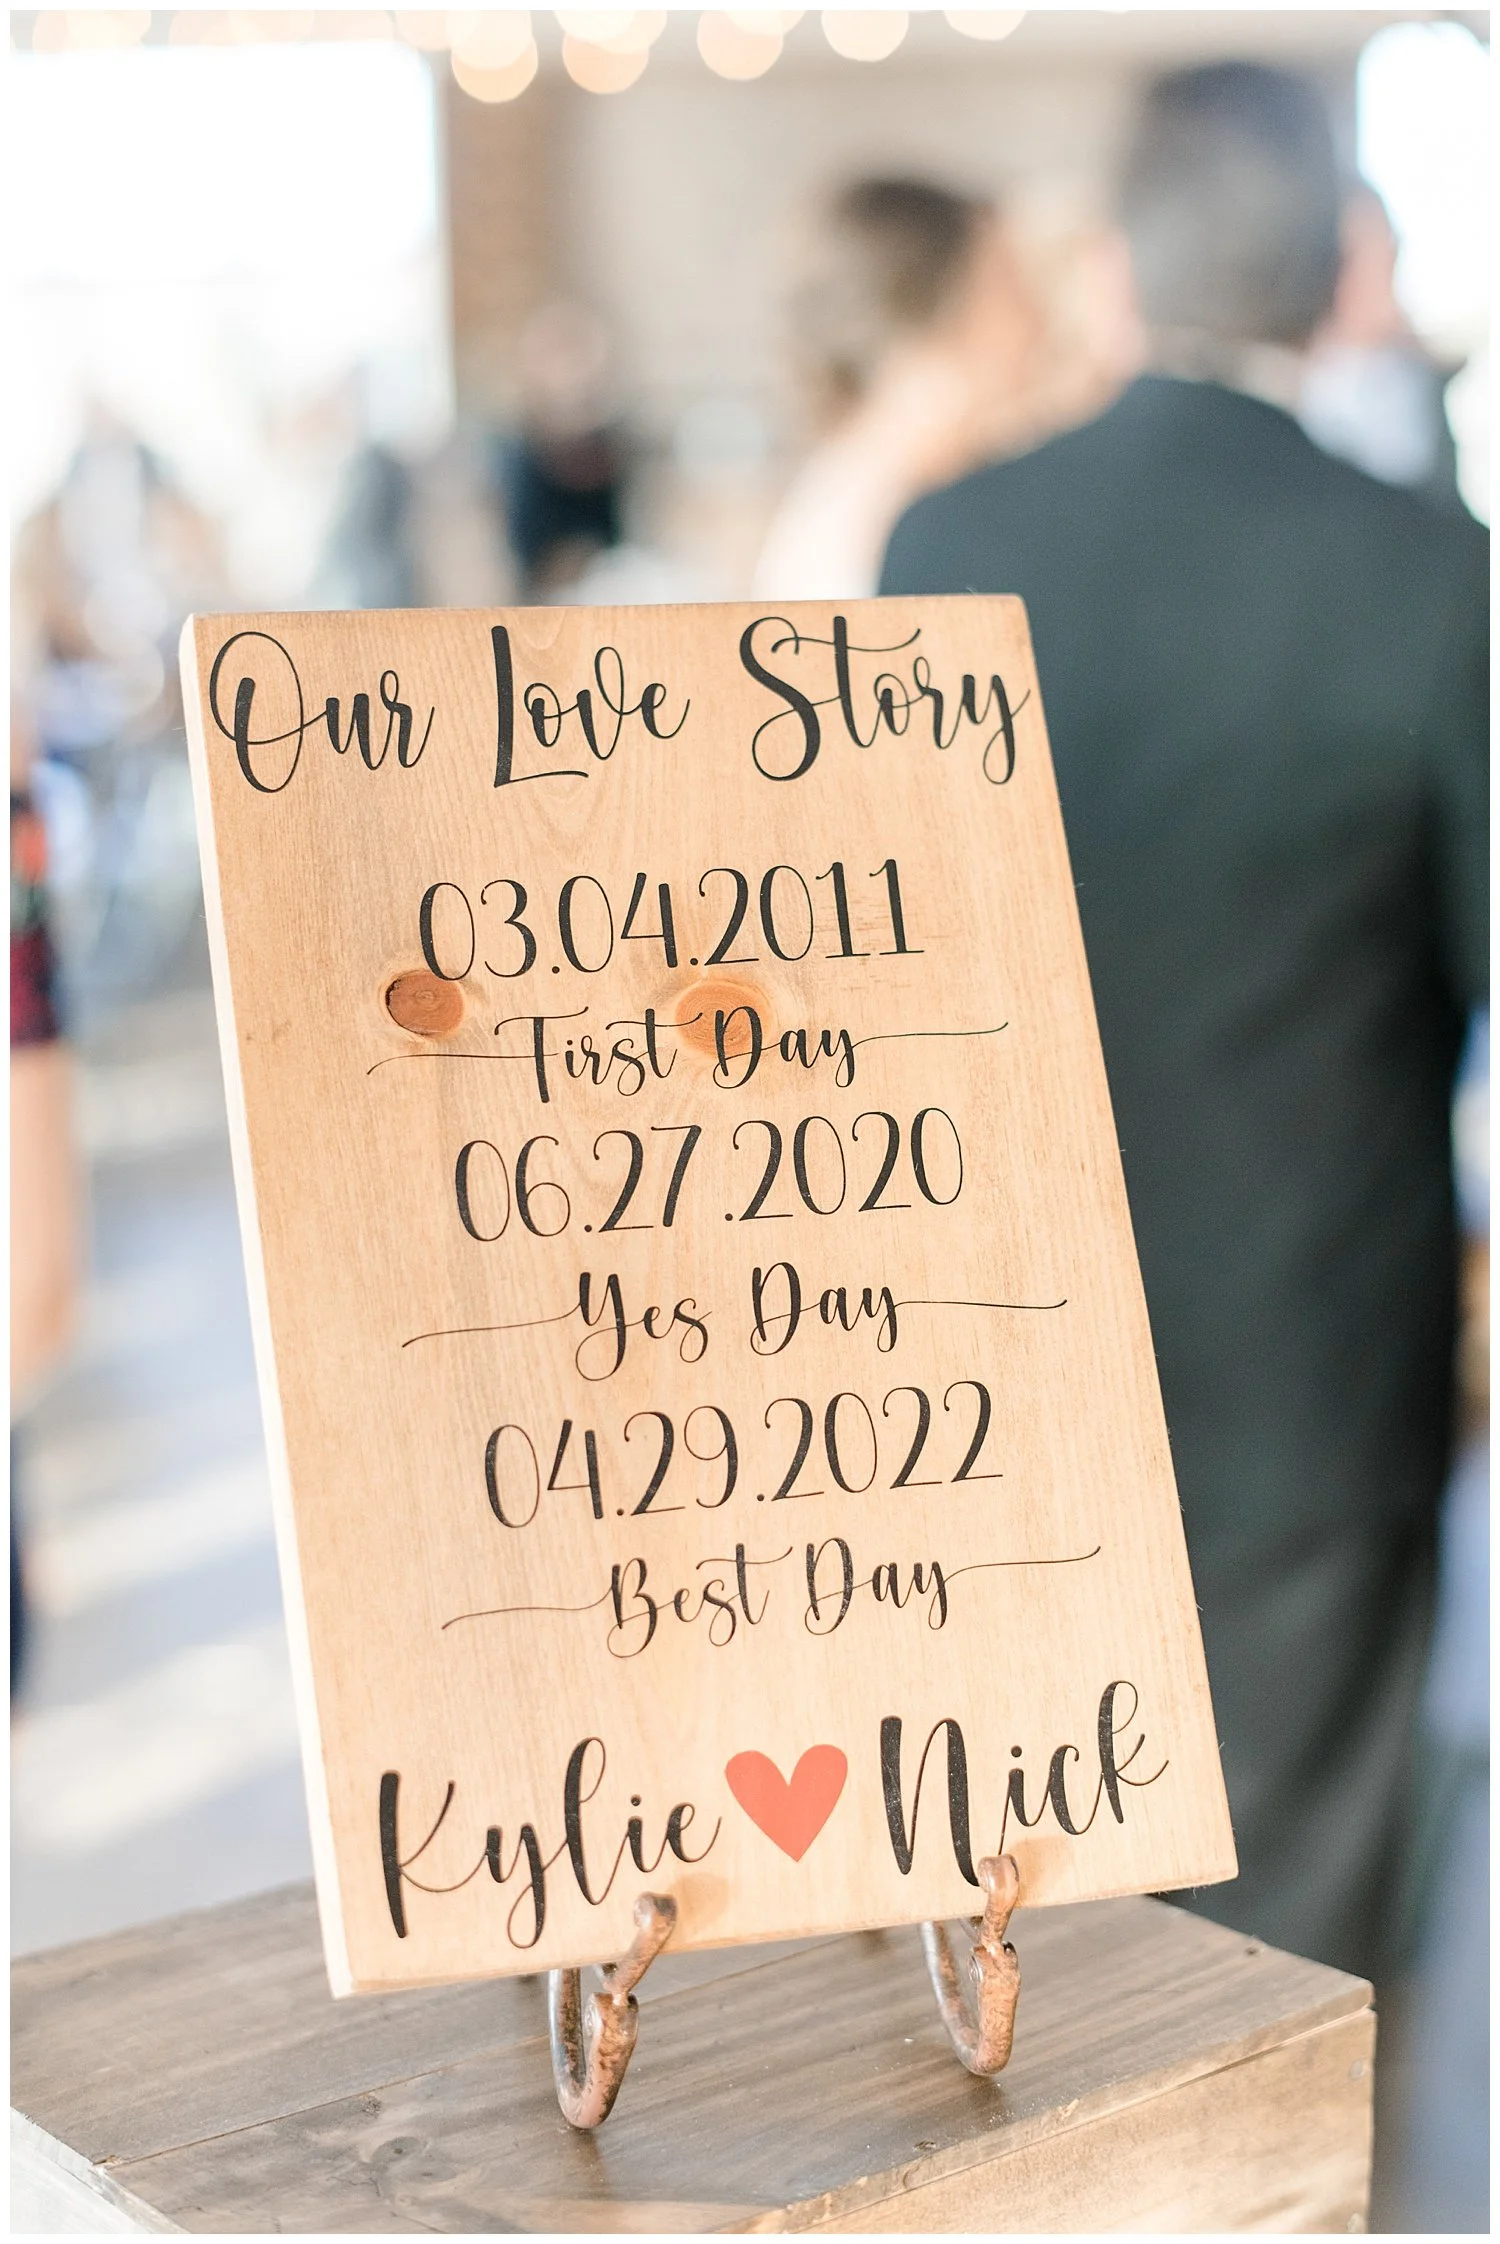 Our Love Story
03.04.2011
First Day
06.27.2020
Yes Day
04.29.2022
Best Day
Kylie ♥ Nick